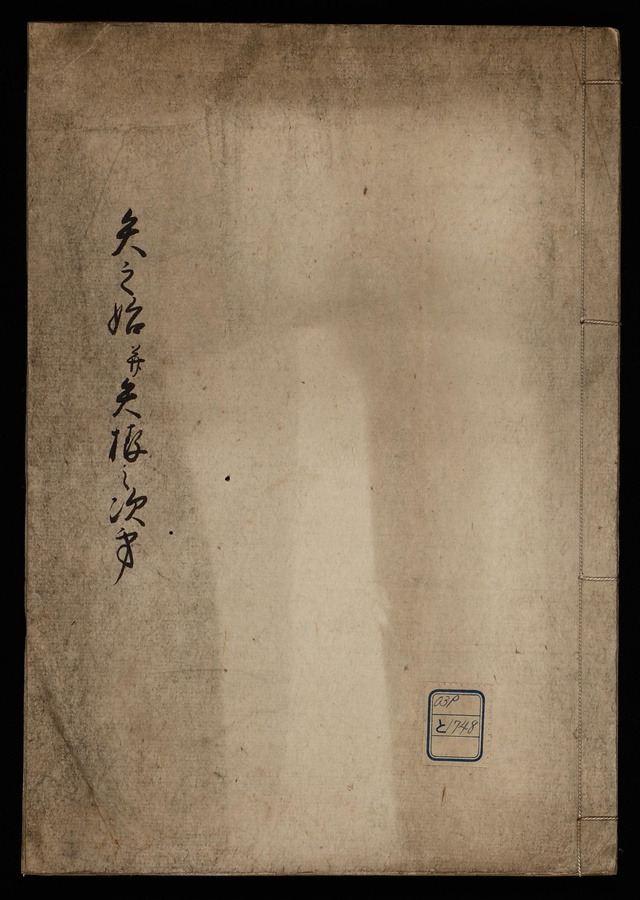 矢之始并矢様之次第
03P
と1748